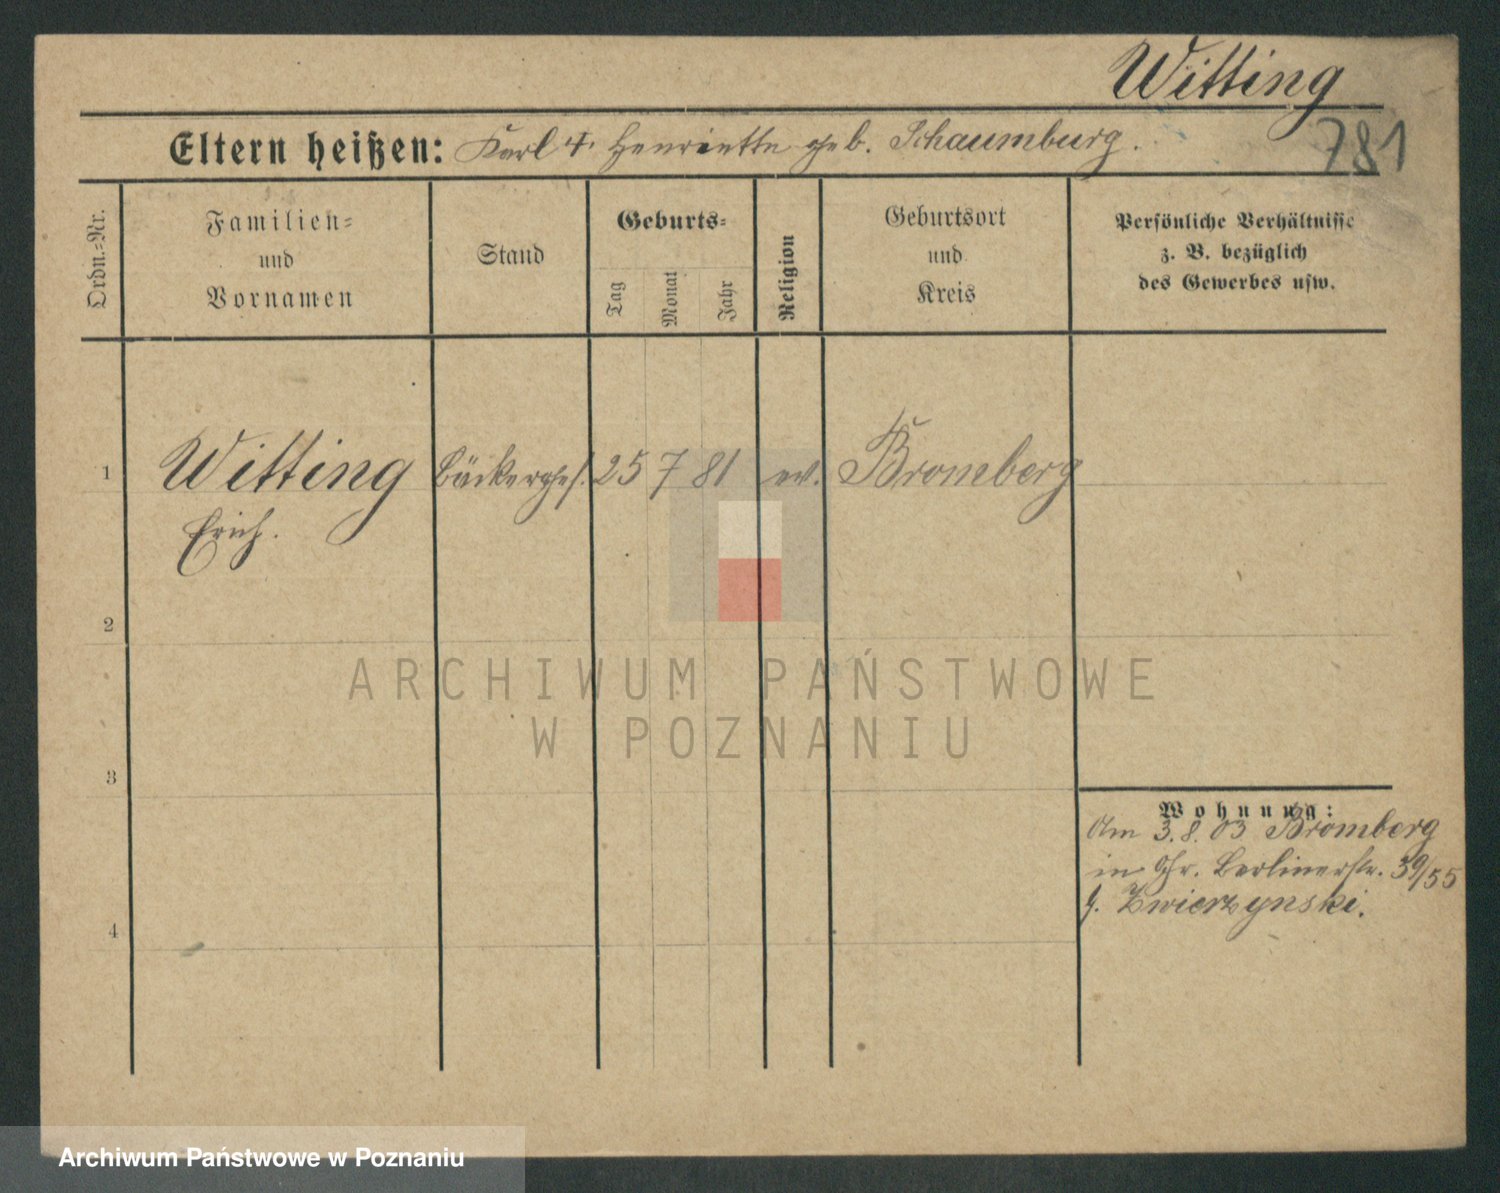 Witting
781
Eltern heißen: Karl u. Henriette geb. Schaumburg.
Ordn.=Nr.
Familien=
und
Vornamen
Stand
Geburts=
Tag
Monat
Jahr
Religion
Geburtsort
und
Kreis
Persönliche Verhältnisse
z. B. bezüglich
des Gewerbes usw.
1
Witting
Erich.
Bäckerges.
25 7 81
ev.
Bromberg
2
3
4
Wohnung:
Am 3.8.03 Bromberg
in Berlinerstr. 39/55
Zwierzynski.
ARCHIWUM PAŃSTWOWE
W POZNANIU
Archiwum Państwowe w Poznaniu